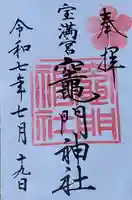 奉拝
宝満宮
竈門神社
令和七年七月十九日